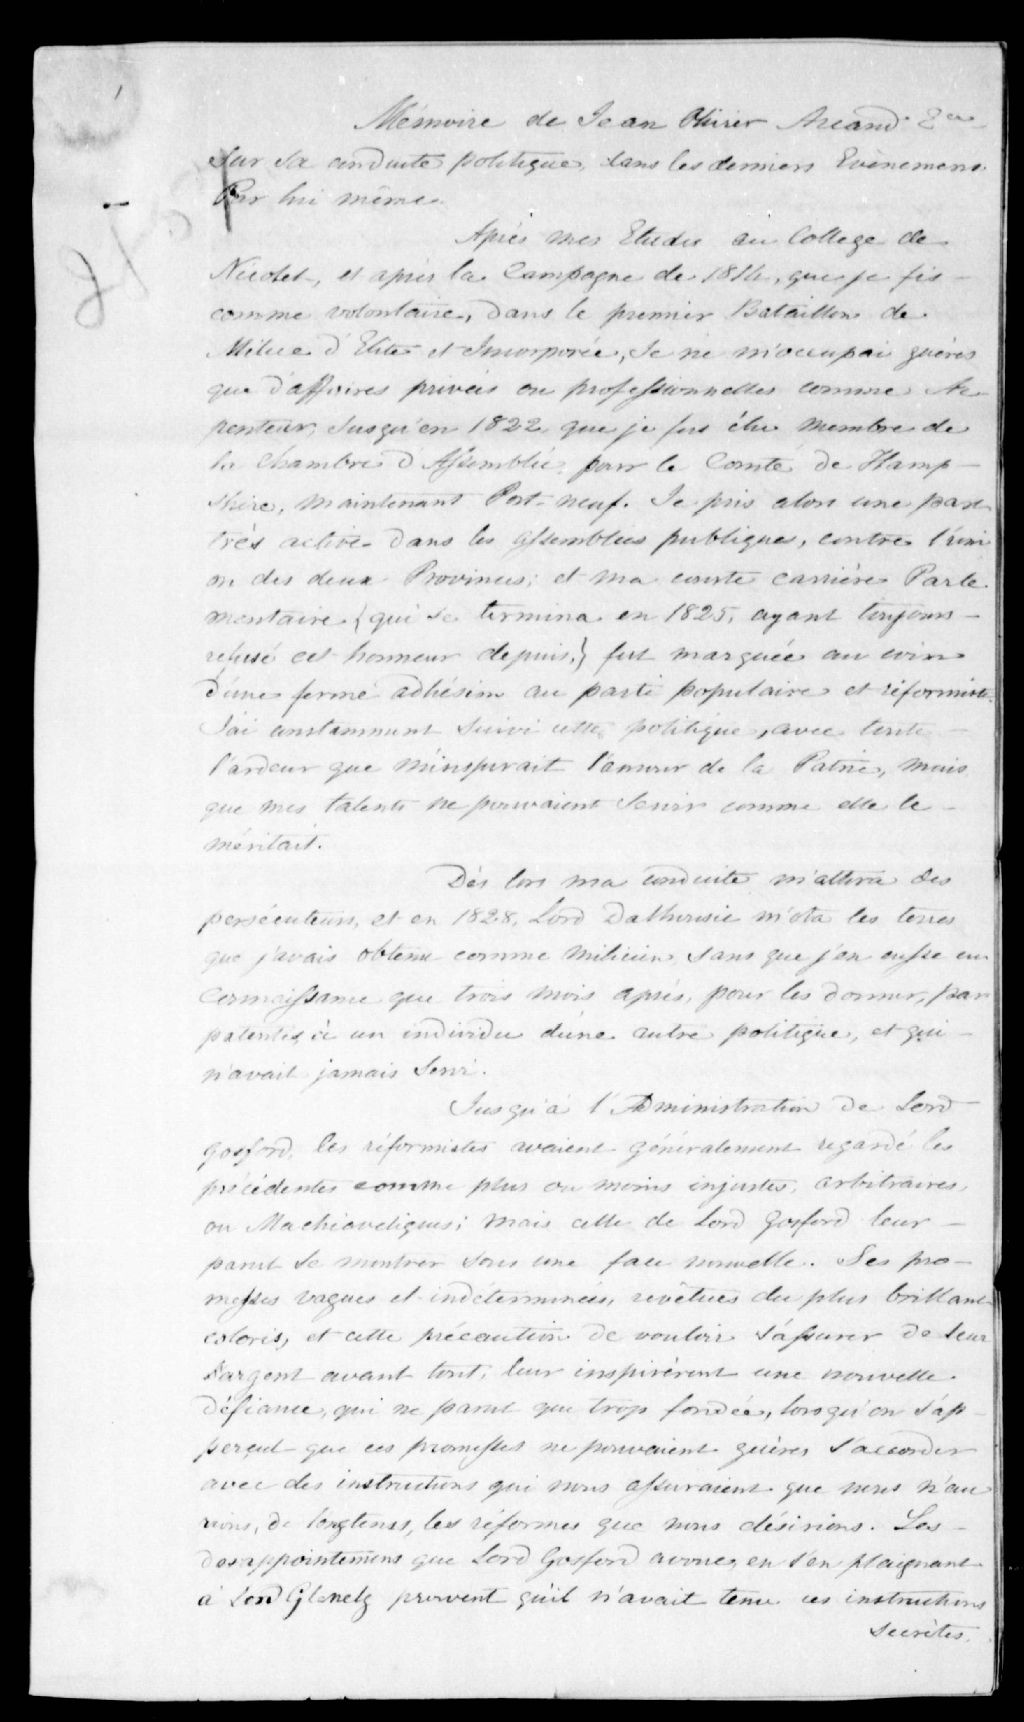 Mémoire de Jean Olivier Arcand Ecr
Sur sa conduite politique, dans les derniers Evènemens.
Par lui même.
Après mes Etudes au College de
Nicolet, et après la Campagne de 1814, que je fis -
comme volontaire, dans le premier Bataillon de
Milice d'Elite et Incorporée, Je ne m'occupai guères
que d'affaires privées ou professionnelles comme Ar-
penteur, Jusqu'en 1822 que je fus élu Membre de
la Chambre d'Assemblée pour le Comté de Hamp -
shire, maintenant Port-neuf. Je pris alors une part
très active dans les assemblées publiques, contre l'uni
on des deux Provinces; et ma courte carrière Parle
mentaire (qui se termina en 1825, ayant toujours -
refusé cet honneur depuis,) fut marquée au coin
d'une ferme adhésion au parti populaire et réformiste.
J'ai constamment suivi cette politique, avec toute -
l'ardeur que m'inspirait l'amour de la Patrie, mais
que mes talents ne pouvaient servir comme elle le -
méritait.
Dès lors ma conduite m'attira des
persécuteurs, et en 1828, Lord Dalhousie m'ota les terres
que j'avais obtenu comme milicien, sans que j'en eusse eu
connaissance que trois mois après, pour les donner, par
patentes, à un individu d'une autre politique, et qui -
n'avait jamais servi.
Jusqu'à l'Administration de Lord
Gosford, les réformistes avaient généralement regardé les
précédentes comme plus ou moins injustes, arbitraires,
ou Machiaveliques; mais celle de Lord Gosford leur -
parut se montrer sous une face nouvelle. Ses pro -
messes vagues et indéterminées, revêtues du plus brillant
coloris, et cette précaution de vouloir s'assurer de leur
argent avant tout, leur inspirèrent une nouvelle
défiance, qui ne parut que trop fondée, lorsqu'on s'ap -
perçut que ces promesses ne pouvaient guères s'accorder
avec des instructions qui nous assuraient que nous n'au
rions, de longtems, les réformes que nous désirions. Les -
desappointemens que Lord Gosford avoue, en s'en plaignant
à Lord Glenelg prouvent qu'il n'avait tenu ces instructions
secrètes.